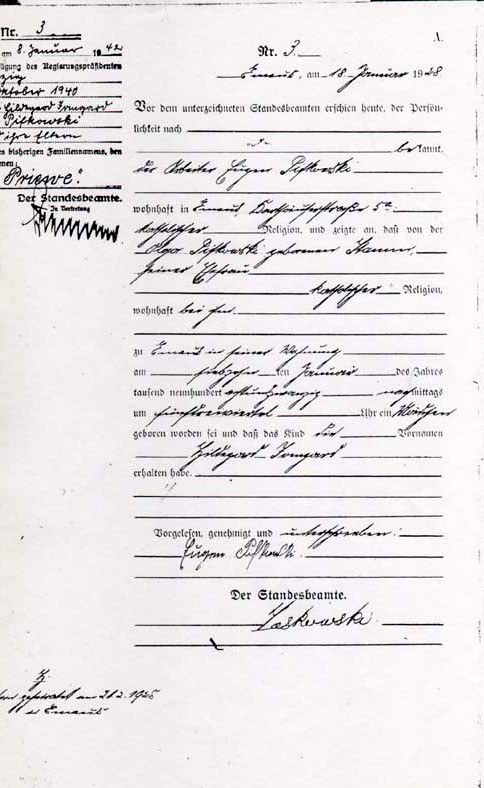 Nr. 3
am 8. Januar 1942
ügung des Regierungspräsidenten
zig
ktober 1940
Hildegard Irmgard
Pifkowski
d ihre Eltern
s bisherigen Familiennamens, den
men:
"Priewe".
Der Standesbeamte.
In Vertretung
A.
Nr. 3
Emaus, am 18. Januar 1928
Vor dem unterzeichneten Standesbeamten erschien heute, der Persön-
lichkeit nach
bekannt,
der Arbeiter Eugen Pifkowski
wohnhaft in Emaus, Karthäuserstraße 5a
katholischer Religion, und zeigte an, daß von der
Olga Pifkowski geborenen Stamm,
seiner Ehefrau
katholischer Religion,
wohnhaft bei ihm,
zu Emaus in seiner Wohnung
am siebzehnten Januar des Jahres
tausend neunhundert achtundzwanzig nachmittags
um Uhr ein Mädchen
geboren worden sei und daß das Kind die Vornamen
Hildegard Irmgard
erhalten habe.
Vorgelesen, genehmigt und unterschrieben:
Eugen Pifkowski
Der Standesbeamte.
Laskowski
geheiratet am 21.2.1925
in Emaus